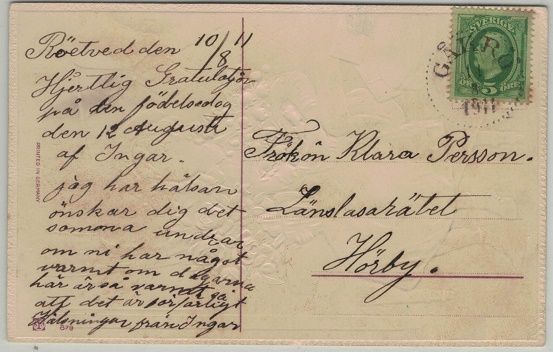 Röetved den 10/8 11
Hjertlig Gratulation
på den födelsedag
den 12 Augusti
af Ingar.
jag har hälsan
önskar dig det
samma undrar
om ni har något
varmt om dagarna
här är så varmt så
att det är förfärligt
Hälsningar från Ingar
PRINTED IN GERMANY
679
SVERIGE
5 ÖRE
1911
Frökön Klara Persson.
Länslasarätet
Hörby.